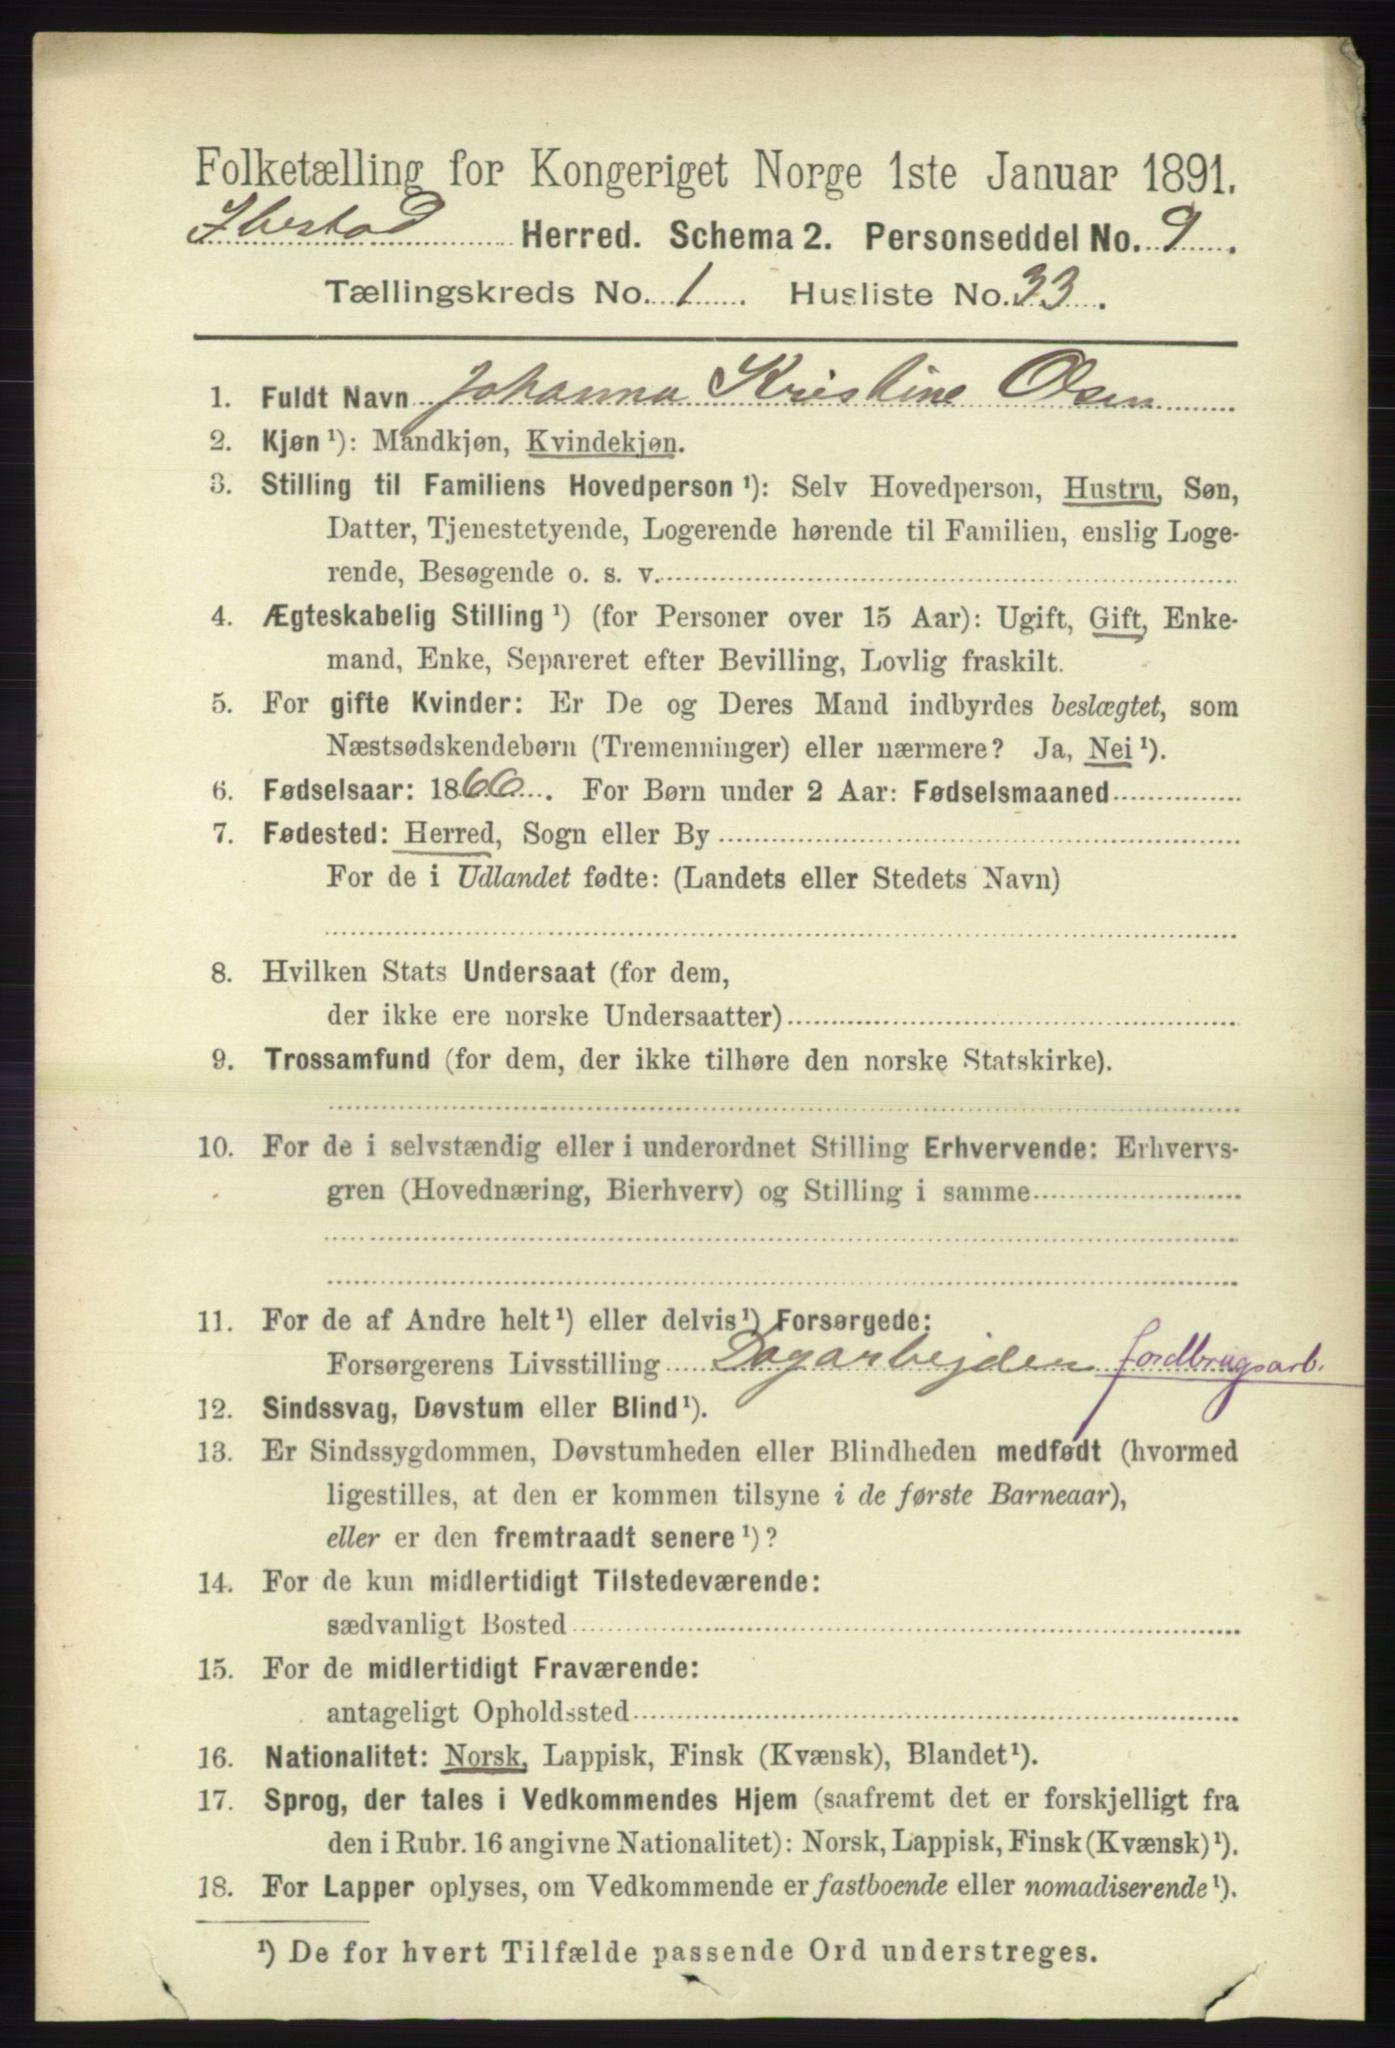 Folketælling for Kongeriget Norge 1ste Januar 1891.
Ibestad Herred. Schema 2. Personseddel No. 9.
Tællingskreds No. 1. Husliste No. 33.
1. Fuldt Navn Johanna Kristine Olsen
2. Kjøn ¹): Mandkjøn, Kvindekjøn.
3. Stilling til Familiens Hovedperson ¹): Selv Hovedperson, Hustru, Søn,
Datter, Tjenestetyende, Logerende hørende til Familien, enslig Loge-
rende, Besøgende o. s. v.
4. Ægteskabelig Stilling ¹) (for Personer over 15 Aar): Ugift, Gift, Enke-
mand, Enke, Separeret efter Bevilling, Lovlig fraskilt.
5. For gifte Kvinder: Er De og Deres Mand indbyrdes beslægtet, som
Næstsødskendebørn (Tremenninger) eller nærmere? Ja, Nei ¹).
6. Fødselsaar: 1860. For Børn under 2 Aar: Fødselsmaaned
7. Fødested: Herred, Sogn eller By
For de i Udlandet fødte: (Landets eller Stedets Navn)
8. Hvilken Stats Undersaat (for dem,
der ikke ere norske Undersaatter)
9. Trossamfund (for dem, der ikke tilhøre den norske Statskirke).
10. For de i selvstændig eller i underordnet Stilling Erhvervende: Erhvervs-
gren (Hovednæring, Bierhverv) og Stilling i samme
11. For de af Andre helt ¹) eller delvis ¹) Forsørgede:
Forsørgerens Livsstilling Dagarbejden jordbrugsarb.
12. Sindssvag, Døvstum eller Blind ¹).
13. Er Sindssygdommen, Døvstumheden eller Blindheden medfødt (hvormed
ligestilles, at den er kommen tilsyne i de første Barneaar),
eller er den fremtraadt senere ¹)?
14. For de kun midlertidigt Tilstedeværende:
sædvanligt Bosted
15. For de midlertidigt Fraværende:
antageligt Opholdssted
16. Nationalitet: Norsk, Lappisk, Finsk (Kvænsk), Blandet ¹).
17. Sprog, der tales i Vedkommendes Hjem (saafremt det er forskjelligt fra
den i Rubr. 16 angivne Nationalitet): Norsk, Lappisk, Finsk (Kvænsk) ¹).
18. For Lapper oplyses, om Vedkommende er fastboende eller nomadiserende ¹).
¹) De for hvert Tilfælde passende Ord understreges.